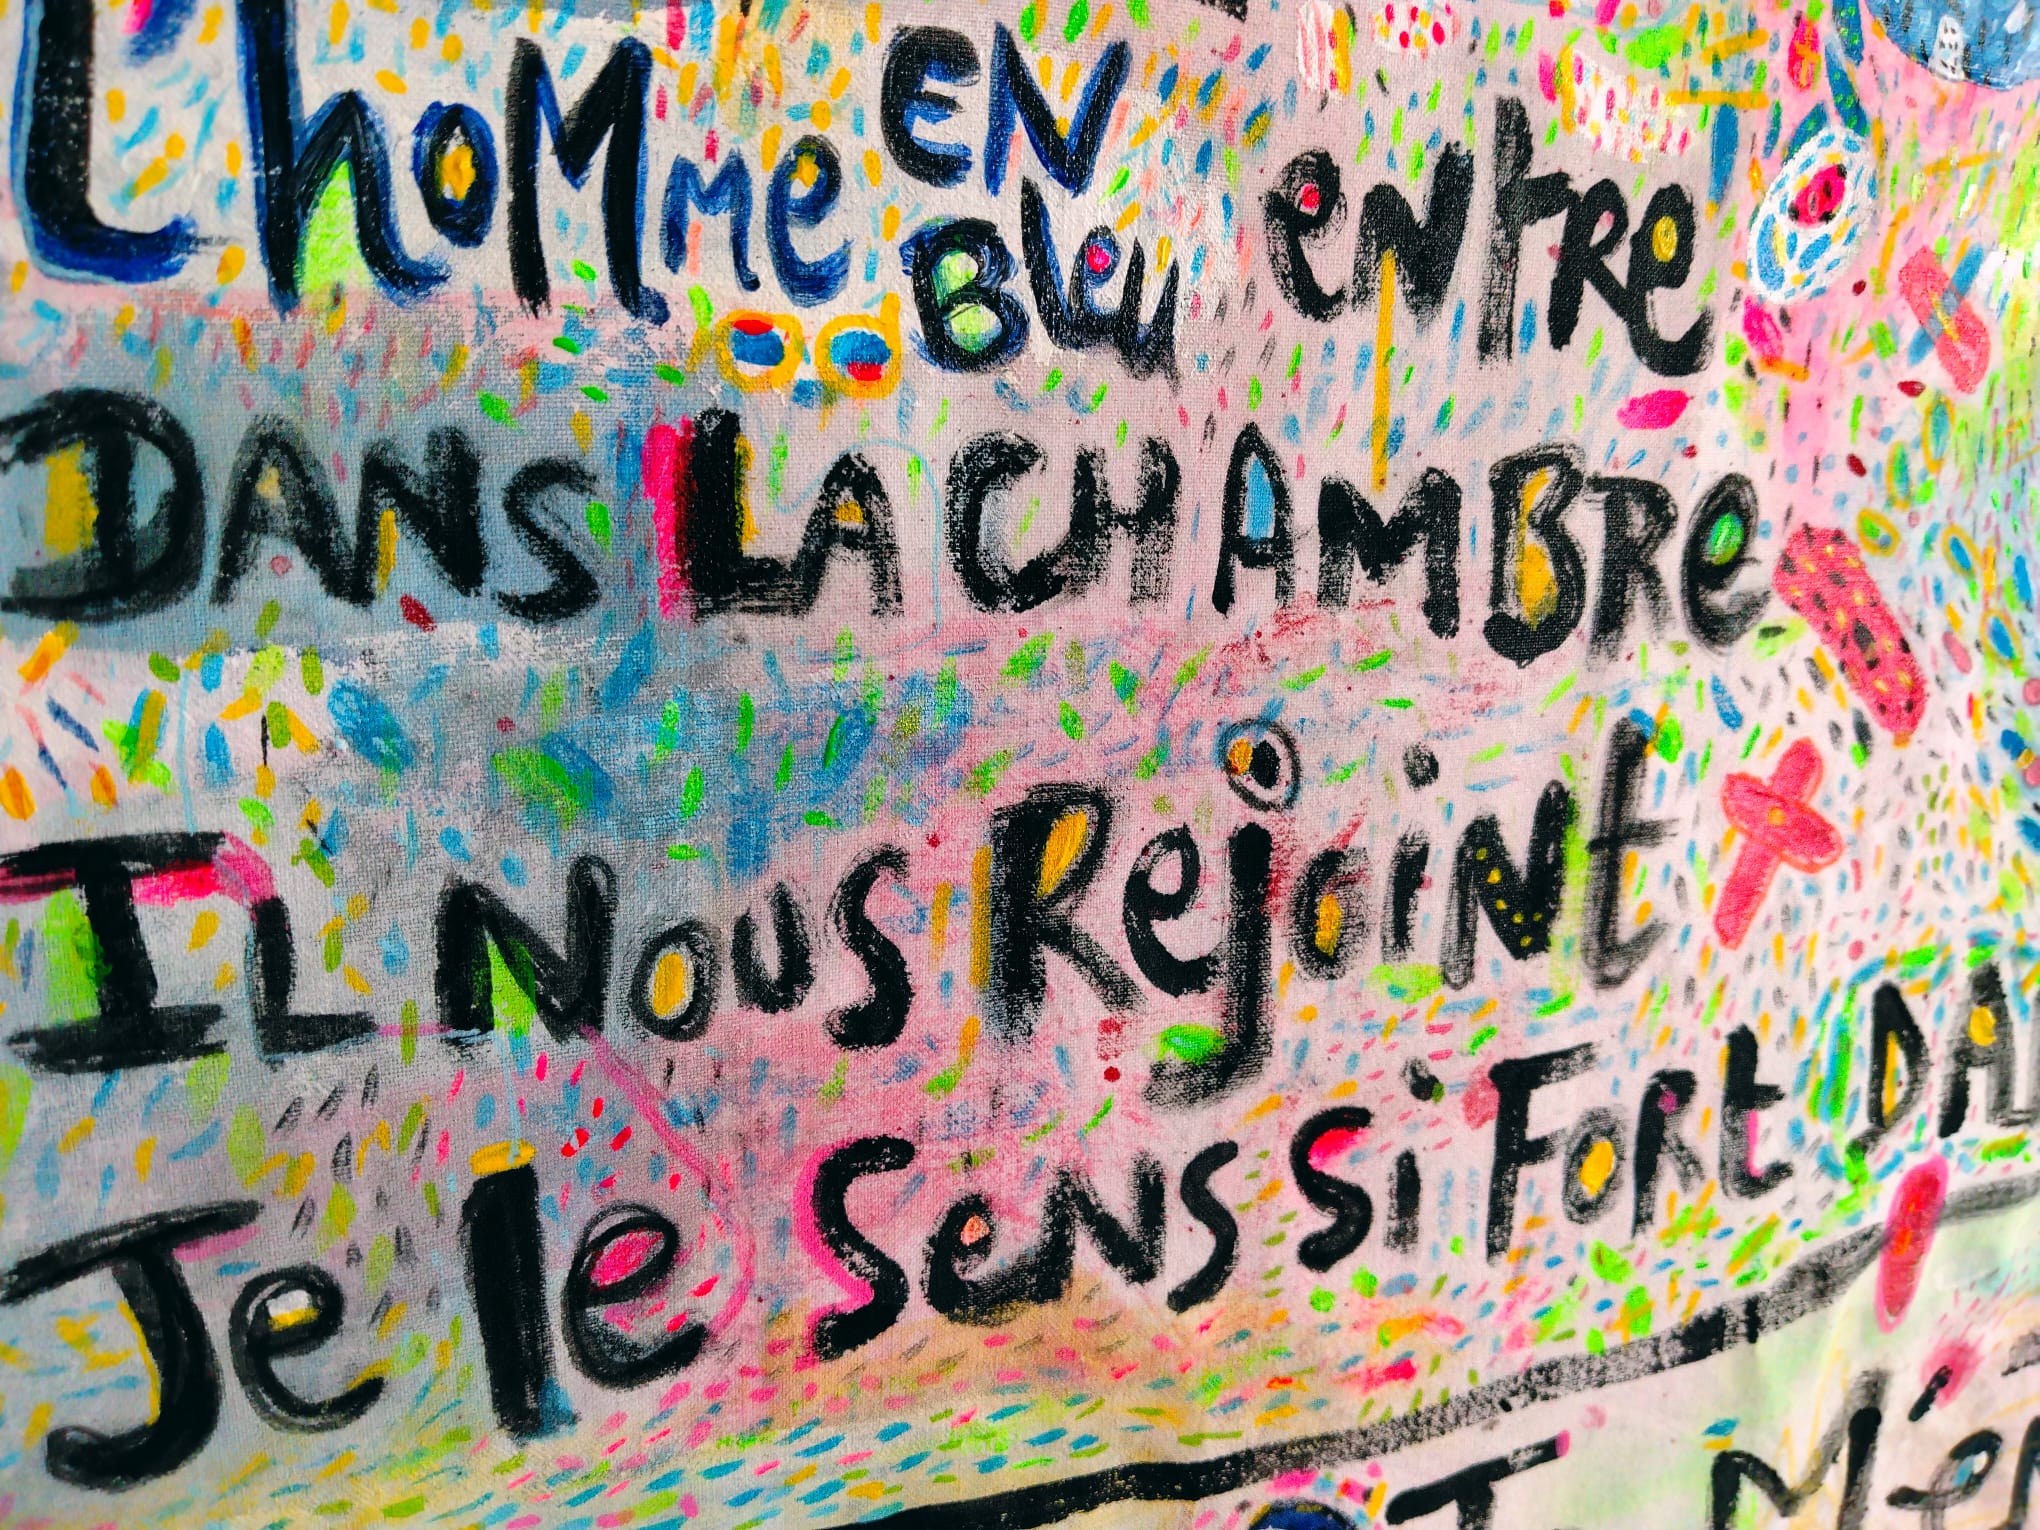 L'hoMme EN Bleu eNtRe
DANS LA CHAMBRe
IL Nous Rejoint
Je le SeNs Si FoRt